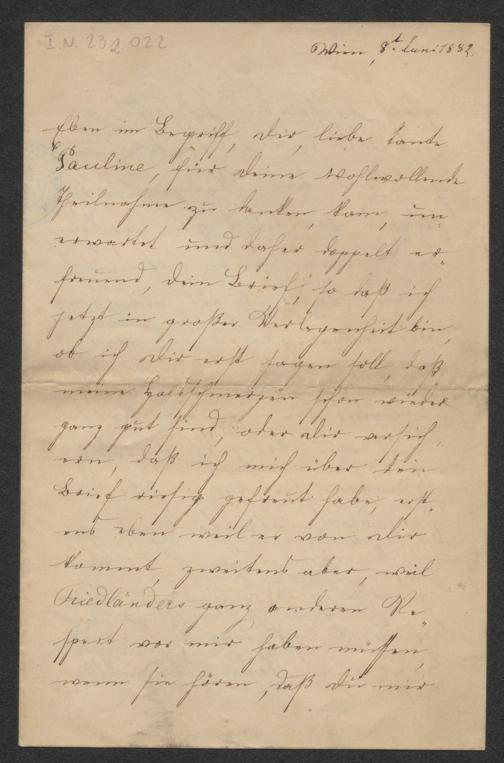 I.N. 232.022
Wien, 8t Juni 1882.
Eben im Begriff, Dir, liebe Tante
Pauline, für Deine wohlwollende
Theilnahme zu danken, kam, un-
erwartet und daher doppelt er-
freuend, Dein Brief, so daß ich
jetzt in großer Verlegenheit bin,
ob ich Dir erst sagen soll, daß
meine Halsschmerzen schon wieder
ganz gut sind, oder Dir versich-
ern, daß ich mich über den
Brief riesig gefreut habe, erst-
ens eben weil er von Dir
kommt, zweitens aber, weil
Friedländers ganz anderen Re-
spect vor mir haben müssen,
wenn sie hören, daß Du mir